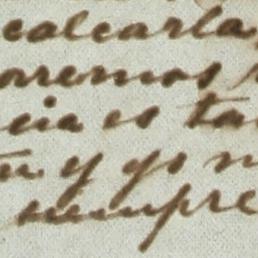 calcarla
orremos
cia es ta
y yo n
siempre